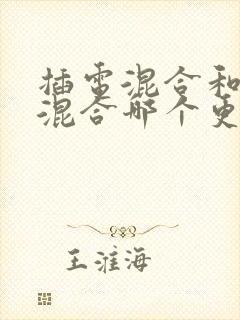 插电混合和
混合哪个更
王淮海